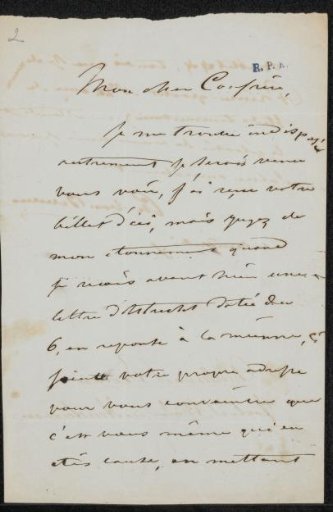 2
R. P. A.
Mon cher Confrère,
Je me trouve indisposé
autrement je serais venu
vous voir, j'ai reçu votre
billet d'ici, mais jugez de
mon étonnement quand
je reçois avant hier une
lettre d'Utrecht datée du
6, en reponse à la mienne, &
jointe votre propre adresse
pour vous convaincre que
c'est vous même qui en
êtes cause, en mettant